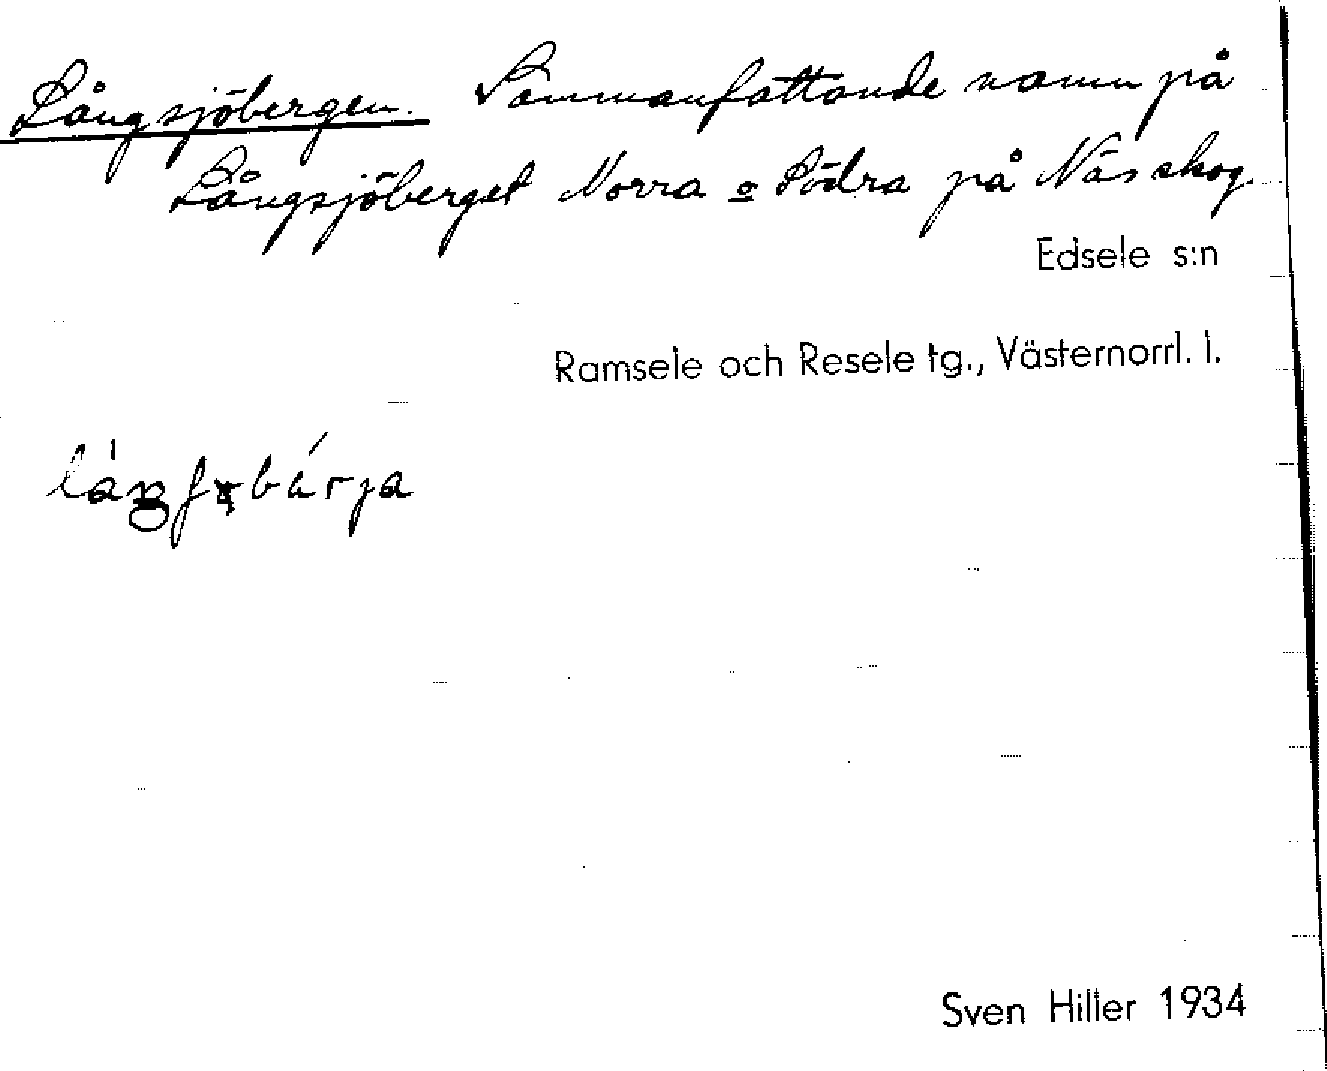 Långsjöbergen. Sammanfattande namn på
Långsjöberget Norra o Södra på Näs skog.
Edsele s:n
Ramsele och Resele tg., Västernorrl. l.
Sven Hiller 1934